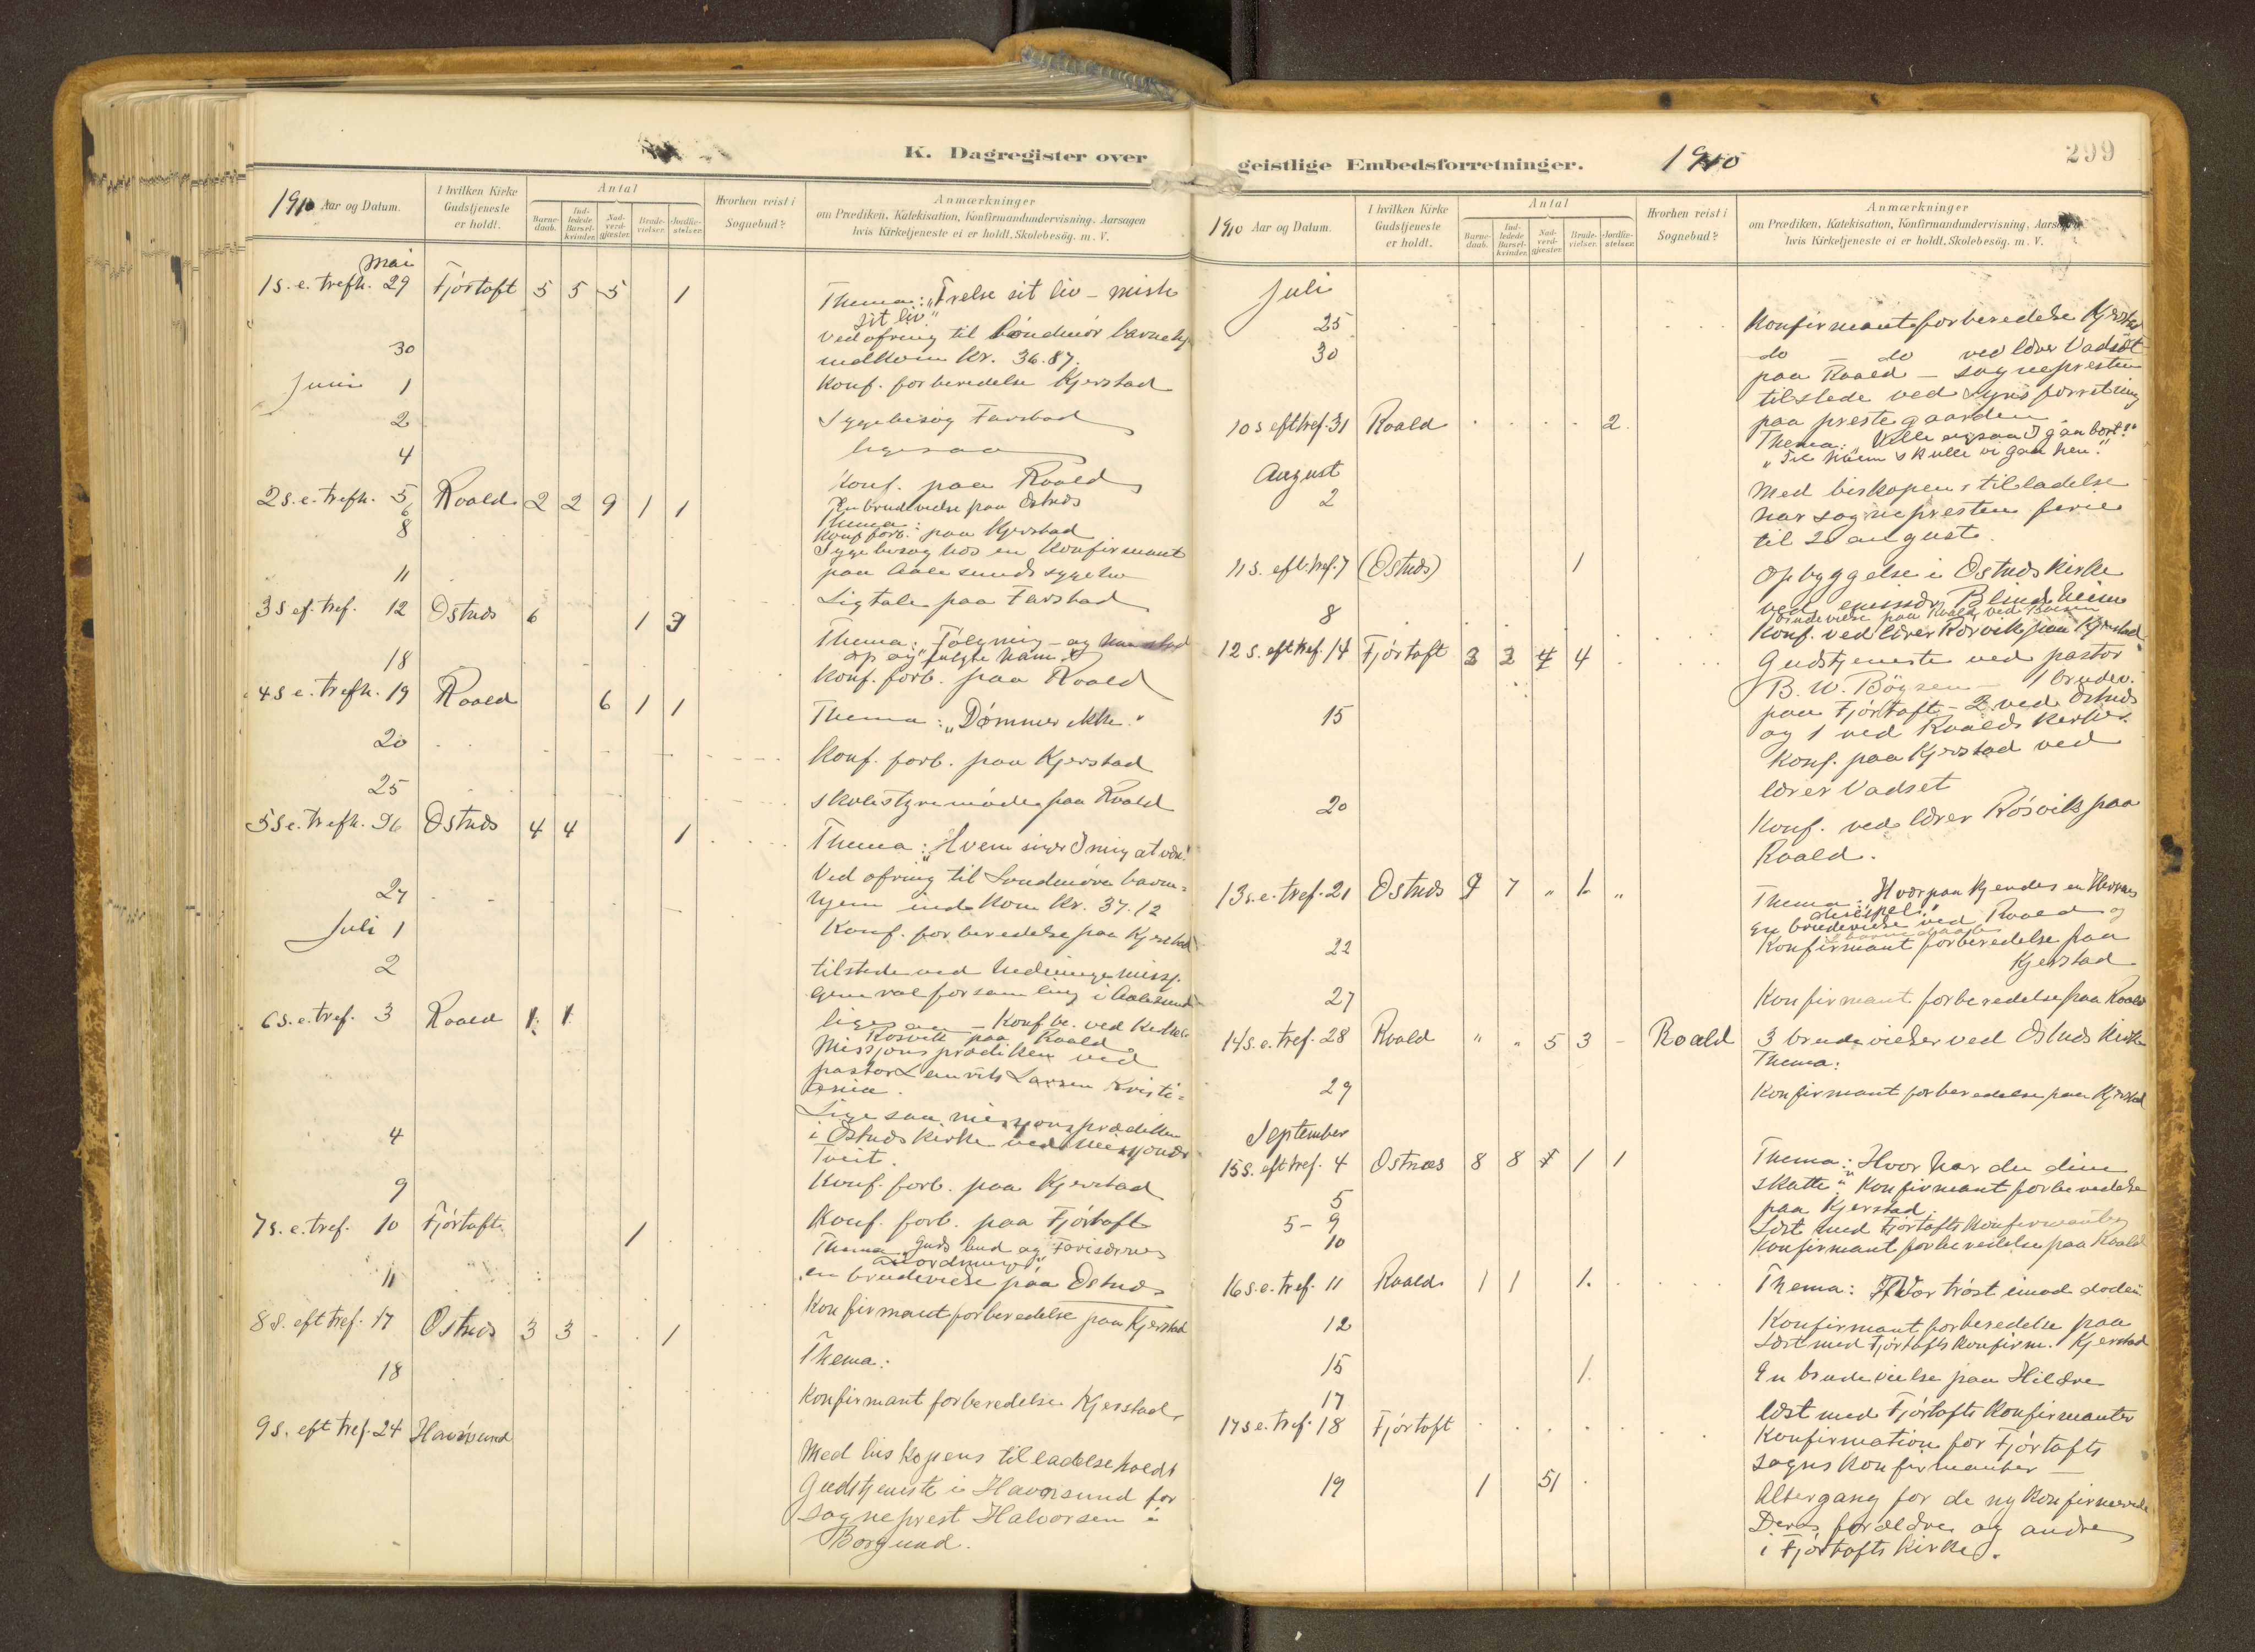 K. Dagregister over
1910 Aar og Datum.
I hvilken Kirke Gudstjeneste er holdt.
Antal
Barne-daab.
Ind-ledede Barsel-kvinder.
Nad-verd-gjæster.
Brude-vielser.
Jordfæ-stelser.
Hvorhen reist i Sognebud?
Anmærkninger
om Prædiken, Katekisation, Konfirmandundervisning, Aarsagen
hvis Kirketjeneste ei er holdt, Skolebesøg. m. V.
Mai
1 s. e. trefh. 29 Fjørtoft 5 5 5 1 Thema: "Frelse sit liv – miste
sit liv"
Ved ofring til Søndmør barnehj.
30 indkom Kr. 36.87.
Juni 1 Konf. forberedelse Kjerstad
2 Sygebesøg Farstad
4 ligesaa
Konf. paa Roald
2 s. e. trefh. 5 Roald 2 2 9 1 1 En brudevielse paa Østnes
6 Thema:
8 Konf. forb. paa Kjerstad
Sygebesøg hos en Konfirmant
11 paa Aalesunds sygehu
Ligtale paa Farstad
3 s ef. tref. 12 Østnes 6 1 Thema: Følgning – og han stod
op og fulgte ham
18 Konf. forb. paa Roald
4 s e. trefh. 19 Roald 6 1 1 Thema: "Dømmer ikke."
20 Konf. forb. paa Kjerstad
25 skolestyremøde paa Roald
5 s e. trefh. 26 Østnes 4 4 1 Thema: "Hvem siger I mig at være!
Ved ofring til Søndmøre barne=
27 hjem indkom Kr. 37.12
Juli 1 Konf. forberedelse paa Kjerstad
2 tilstede ved Hedningemissj.
generalforsamling i Aalesund
6 s. e. tref. 3 Roald 1 1 ligesaa – Konf. be. ved
Rosvik paa Roald
Missjonsprædiken ved
pastor Lauritz Larsen Kristi=
ania.
4 Ligesaa missjonsprædiken
i Østnes kirke ved missjonær
Tveit.
9 Konf. forb. paa Kjerstad
7 s. e. tref. 10 Fjørtoft 1 Konf. forb. paa Fjørtoft
Thema "Guds bud og Farisæernes
anordninger"
11 en brudevielse paa Østnes
Konfirmantforberedelse paa Kjerstad
8 s. eft tref. 17 Østnes 3 3 1
Thema:
18 Konfirmantforberedelse Kjerstad
9 s. eft tref. 24 Havøsund Med biskopens tilladelse holdt
Gudstjeneste i Havøsund for
sogneprest Halvorsen i
Borgund.
geistlige Embedsforretninger. 1910
299
1910 Aar og Datum.
I hvilken Kirke Gudstjeneste er holdt.
Antal
Barne-daab.
Ind-ledede Barsel-kvinder.
Nad-verd-gjæster.
Brude-vielser.
Jordfæ-stelser.
Hvorhen reist i Sognebud?
Anmærkninger
om Prædiken, Katekisation, Konfirmandundervisning, Aarsagen
hvis Kirketjeneste ei er holdt, Skolebesøg. m. V.
Juli
25 Konfirmantforberedelse Kjerstad
30 do do ved lærer Vadset
paa Roald – sognepresten
tilstede ved synsforretning
paa prestegaarden
10 s eft tref. 31 Roald 2 Thema: "Ville ogsaa I gaa bort?"
"Til hvem skulle vi gaa hen."
August
2 Med biskopens tilladelse
har sognepresten ferie
til 20 august.
11 s. eft. tref. 7 (Østnes) 1 Opbyggelse i Østnes kirke
ved emissær Blindheim
brudevielse paa Roald ved Bøisen
8 Konf. ved lærer Rørvik paa Kjerstad
12 s. eft tref. 14 Fjørtoft 3 3 4 4 Gudstjeneste ved pastor
B. W. Bøysen – 1 brudev.
paa Fjørtoft – 2 ved Østnes
og 1 ved Roalds kirke.
15 Konf. paa Kjerstad ved
lærer Vadset
20 Konf. ved lærer Rösvik paa
Roald.
13 s. e. tref. 21 Østnes 9 7 " 1. " Thema: Hvorpaa kjendes en Herrens
discipel"
En brudevielse ved Roald og
22 Konfirmantforberedelse paa
Kjerstad
27 Konfirmantforberedelse paa Roald
14 s. e. tref. 28 Roald " " 5 3 – Roald 3 brudevielser ved Østnes kirke
Thema:
29 Konfirmantforberedelse paa Kjerstad
September
15 s. eft tref. 4 Østnes 8 8 1 1 Thema: "Hvor har du dine
skatte" Konfirmantforberedelse
5 paa Kjerstad.
5 – 9 Læst med Fjørtofts konfirmanter
10 Konfirmantforberedelse paa Roald
16 s. e. tref. 11 Roald 1 1 1. Thema: Vor trøst imod døden
12 Konfirmantforberedelse paa
Kjerstad
15 Læst med Fjørtofts konfirm.
1. En brudevielse paa Hildre
17 læst med Fjørtofts Konfirmanter
17 s e. tref. 18 Fjørtoft Konfirmation for Fjørtofts
sogns konfirmanter –
19 1 51 Altergang for de ny konfirmerede
Deres forældre og andre
i Fjørtofts kirke.